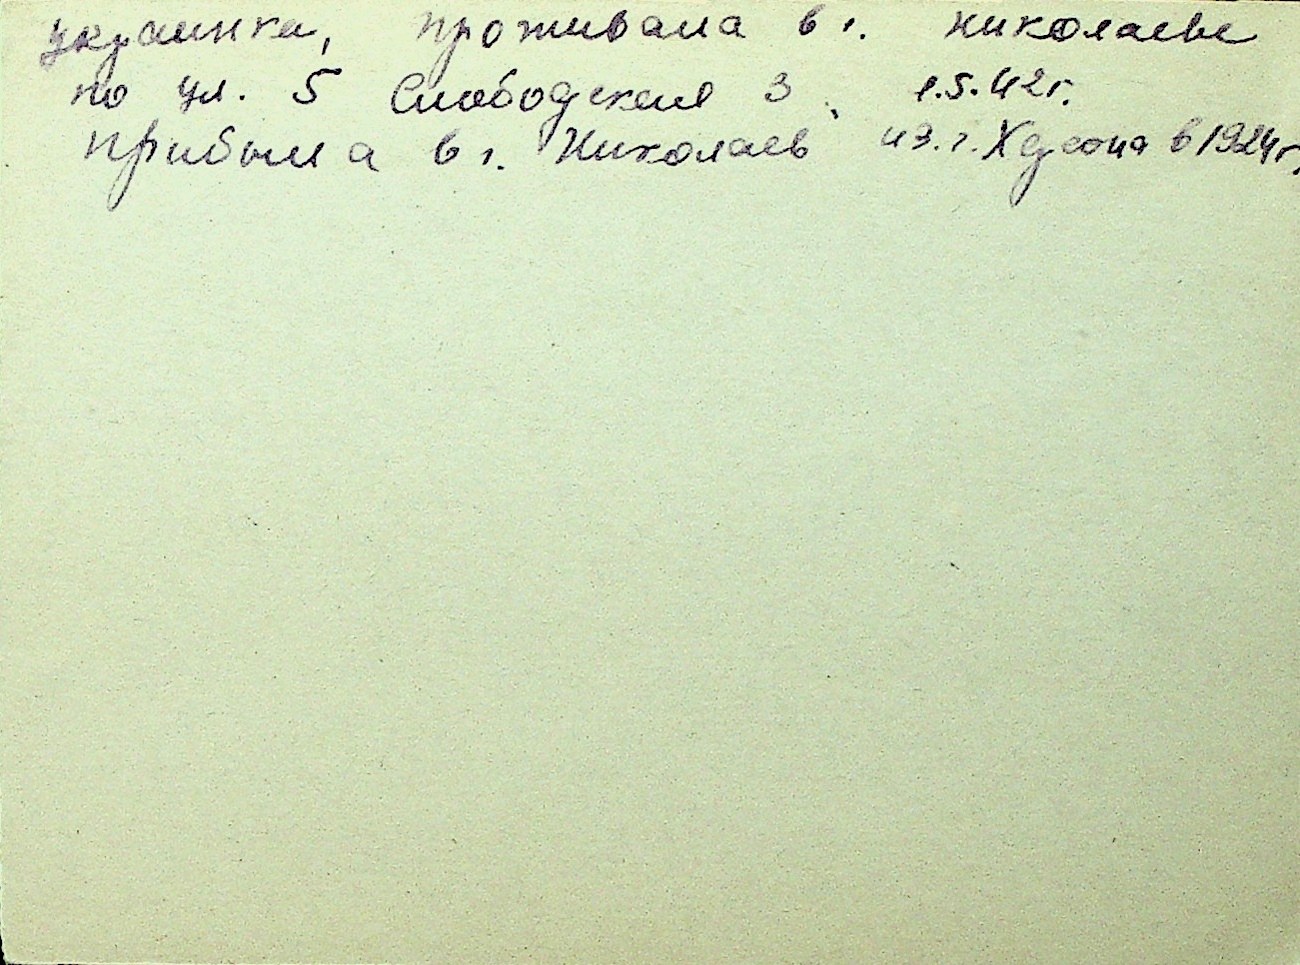 украинка, проживала в г. Николаеве
по ул. 5 Слободская 3, 1.5.42 г.
прибыла в г. Николаев из г. Херсона в 1924 г.